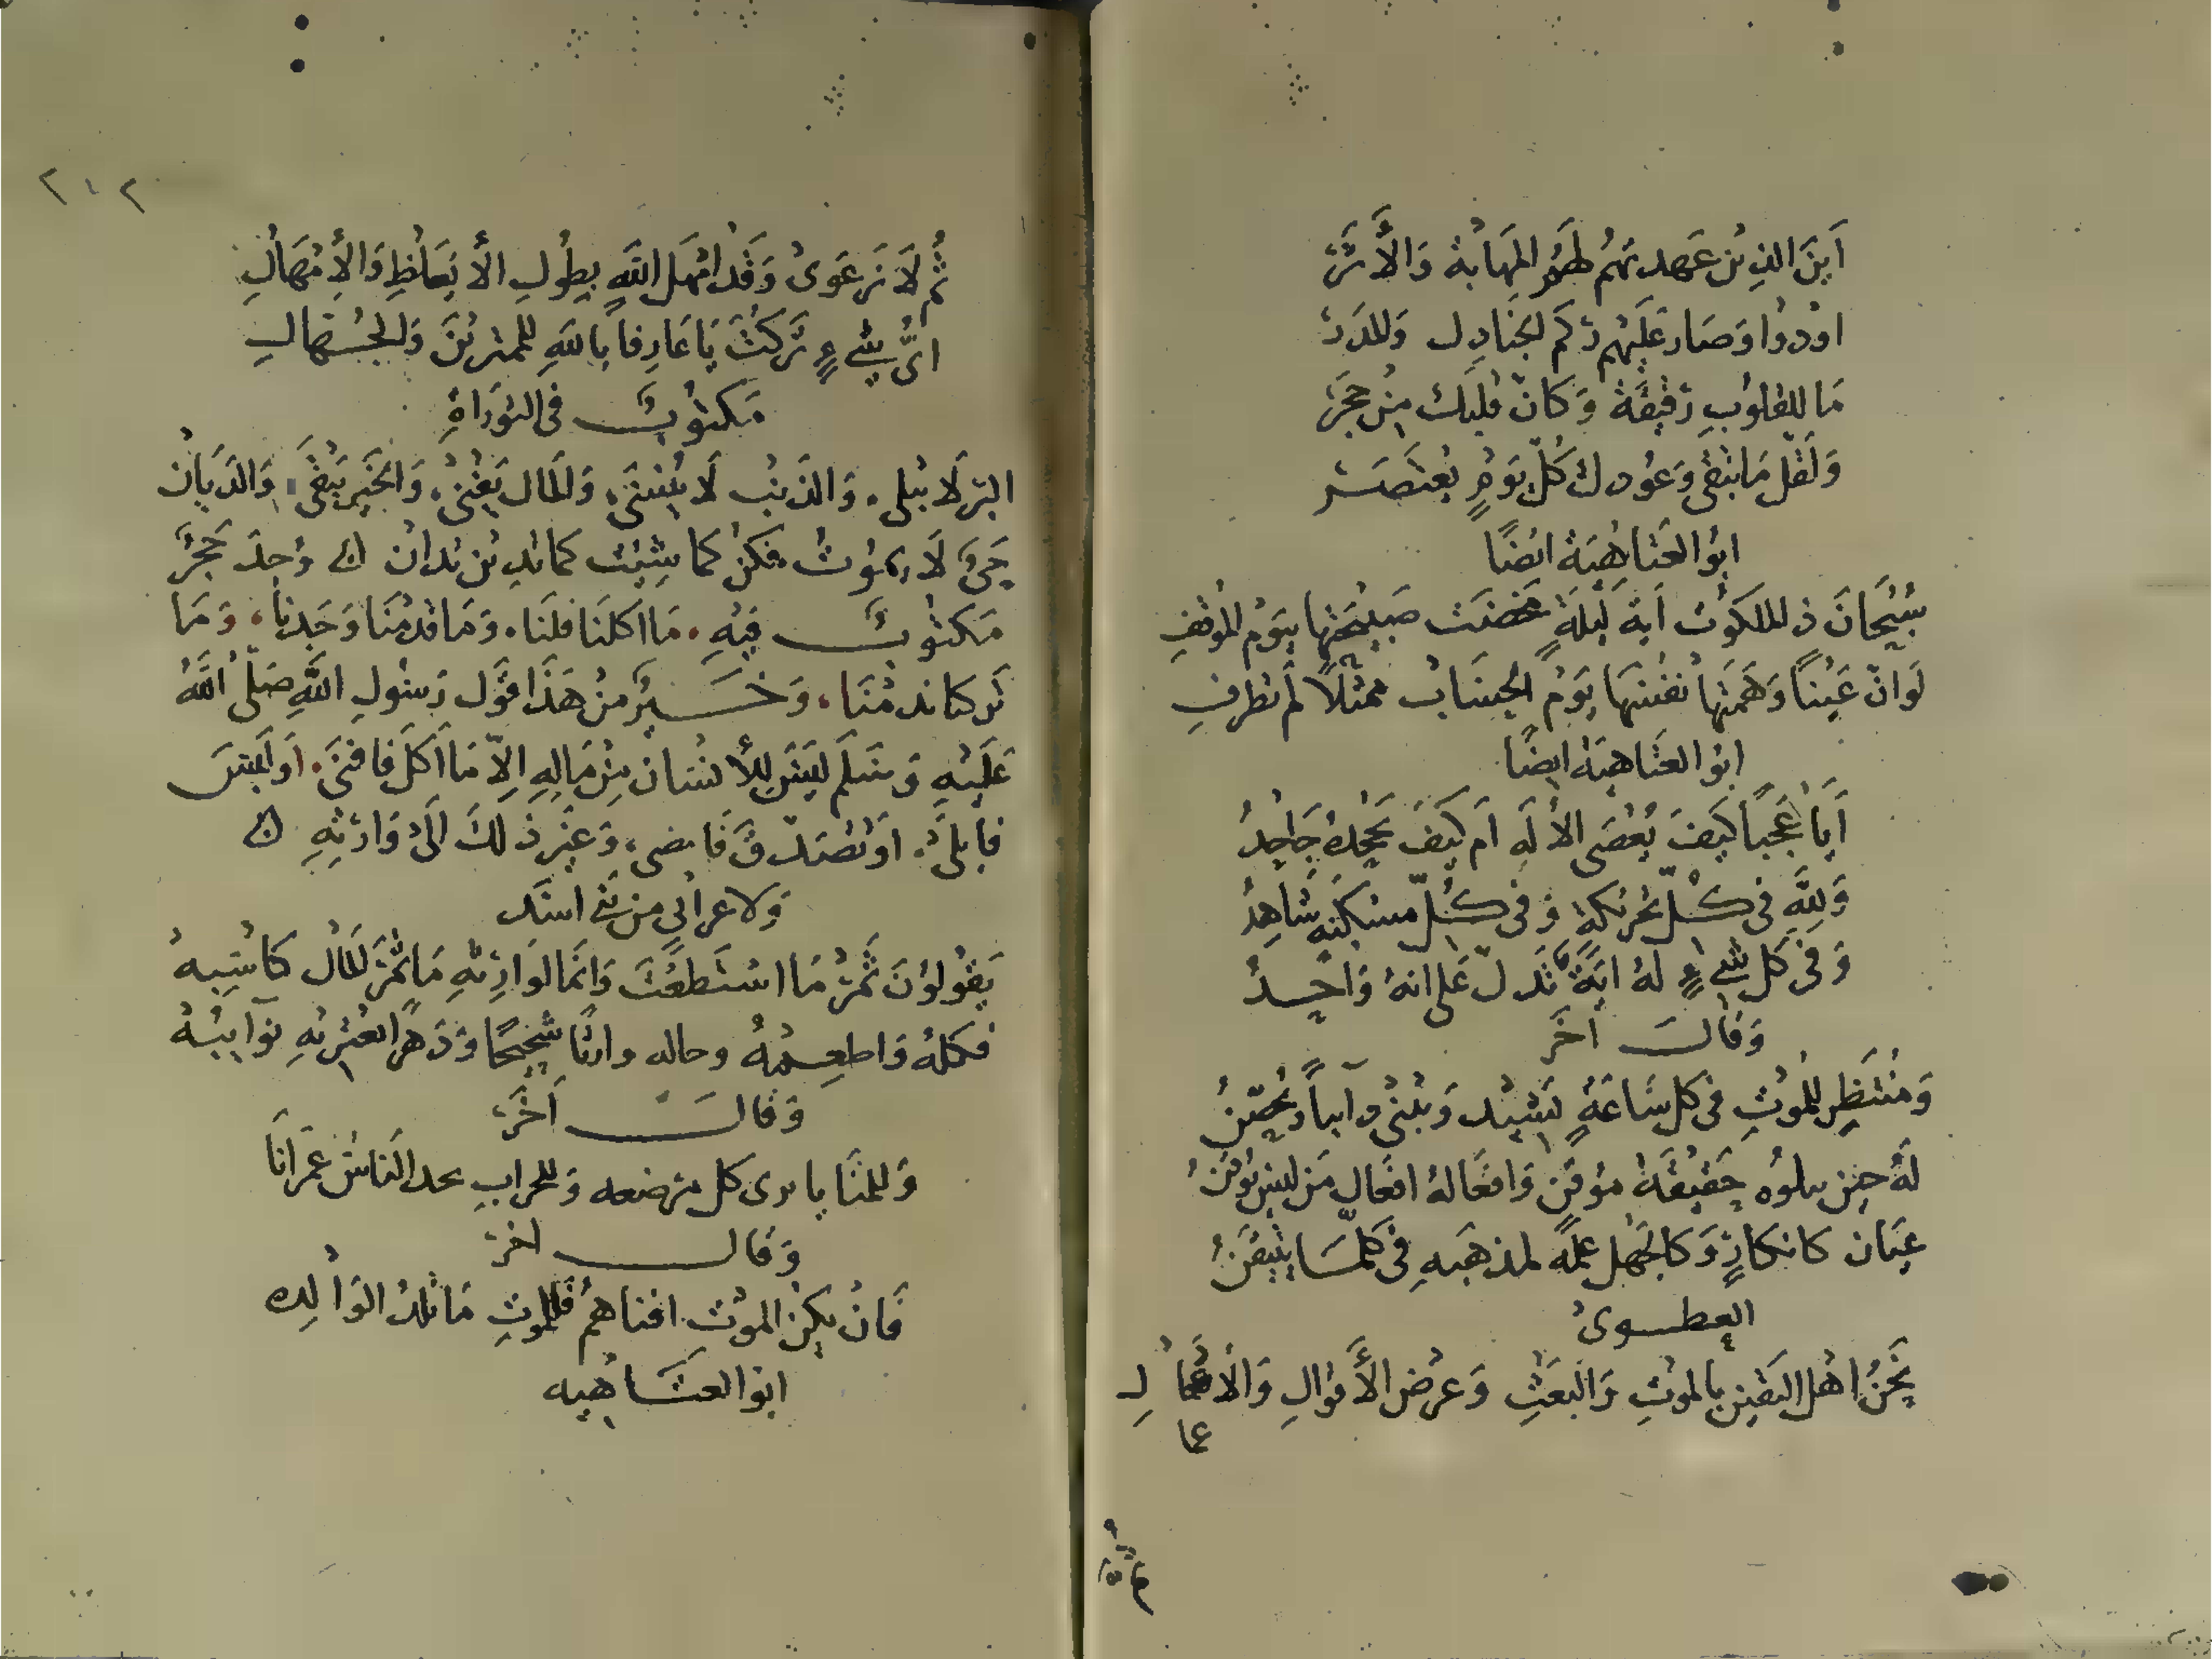 اَيْنَ الذِيْن عَهدتهُم لهَمُ المَهَابَة وَالأَثَرْ
اوْدوْا وَصَار عَلَيْهم رَكم الجَنَادِل وَالمَدَرْ
مَا لِلقلوْبِ رَقيْقَة وَكَانّ قلبَك مِنْ حَجَرْ
وَلَقَلّ مَا تبْقى وَعُودك كُلّ يَوْمٍ يُعْتَصَرْ
ابوْ العَتاهِيَة ايْضًا
سُبْحَانَ ذِي الملكوْت اَيّة لَيْلَةٍ مخضت صَبِيْحَتها بيَوْم الموْقفِ
لَوْ انّ عَيْناً وَهَمَتها نفسَهَا يَوْم الحِسَاب ممثلًا لَم تَطْرفِ
ابوْ العَتاهيَة ايضًا
اَيَا عَجَبًا كَيفَ يُعْصَى الألَه اَم كَيفَ يَجْحَدهُ جَاحِدُ
وَلِلَّهِ فى كُلّ تحْرِيْكةٍ وَفى كُلّ تسكيْنَةٍ شَاهِدُ
وَفى كل شَيْءٍ لهُ ايَةٌ تَدلّ عَلى انهُ وَاحِدُ
وَقالَ اخَر
وَمُنْتَظِر لِلْمَوْتِ فى كل سَاعَةٍ يَشِيْد وَيبْنى دآيباً وَيُحَصّنُ
لَهُ حيْن تبلوهُ حَقِيْقَةُ موْقنٍ وَافعَالهُ افعَال مَن ليسَ يُوْقنُ
عِيَان كانكارٍ وَكالجَهْل علمُه لمذهَبهِ فى كلمَا يتيَقنُ
العطـوى
نَحْنُ اهْل اليَقيْن بِالموْتِ وَالبَعْثِ وَعرْض الأَقوَالِ وَالأعْمَالِ
عما
ثُمّ لَا نَرْعَوى وَقدْ امْهل اللّهِ بِطُولِ الأيْعَاظِ وَالأِمْهَالِ
ايُّ شَيْءٍ تَركتَ يَا عَارفا باللّهِ للممترِيْنَ وَالجُهّالِ
مَكتوْبٌ فى التوْرَاةِ
البرّ لَا يبْلى، وَالذَنْب لَا يُنسَى، وَالمَال يَفْنى، وَالخَيْر يَبْقَى، وَالدَيَّان
حَيّ لَا يموْتُ، فكنْ كما شِئْت كما تدِيْن تدَان ۞ وُجدَ حَجَرٌ
مَكتوْبٌ فِيْهِ، مَا اكلنَا فلنَا، وَمَا قدمْنَا وَجَدنا، وَمَا
تَركنا ندمْنَا، وَخَيْرٌ مِنْ هَذَا قَوْل رَسُولِ اللّهِ صَلّى اللَّهُ
عَلَيْهِ وَسَلم ليْسَ لِلأنسَان مِنْ مَالِهِ اِلَّا مَا اَكلَ فافنَى، اَو لَبسَ
فابلى، اَوْ تَصَدّقَ فَامضى، وَغيْر ذَلكَ اِلَى وَارثِهِ ۞
وَلاعرابي من بَنى اسَد
يَقوْلوْنَ ثَمّرْ مَا اسْتَطعْتَ وَانما لوَارِثهِ مَا ثمّرَ المَال كَاسِبهُ
فكلهُ وَاطعِمْهُ وخاله وارثًا شحِيْحًا وَدَهرًا تعْتَرِيْهِ نوَآيبُهُ
وَقالَ اَخَرْ
وَللمنَايا ترى كل مرضعه وَللخراب يجد الناسُ عمرانَا
وَقال اخَرْ
فَانْ يكنْ الموْت افناهمُ فَللموتِ مَا تلدُ الوَالِده
ابوْ العتَاهيه